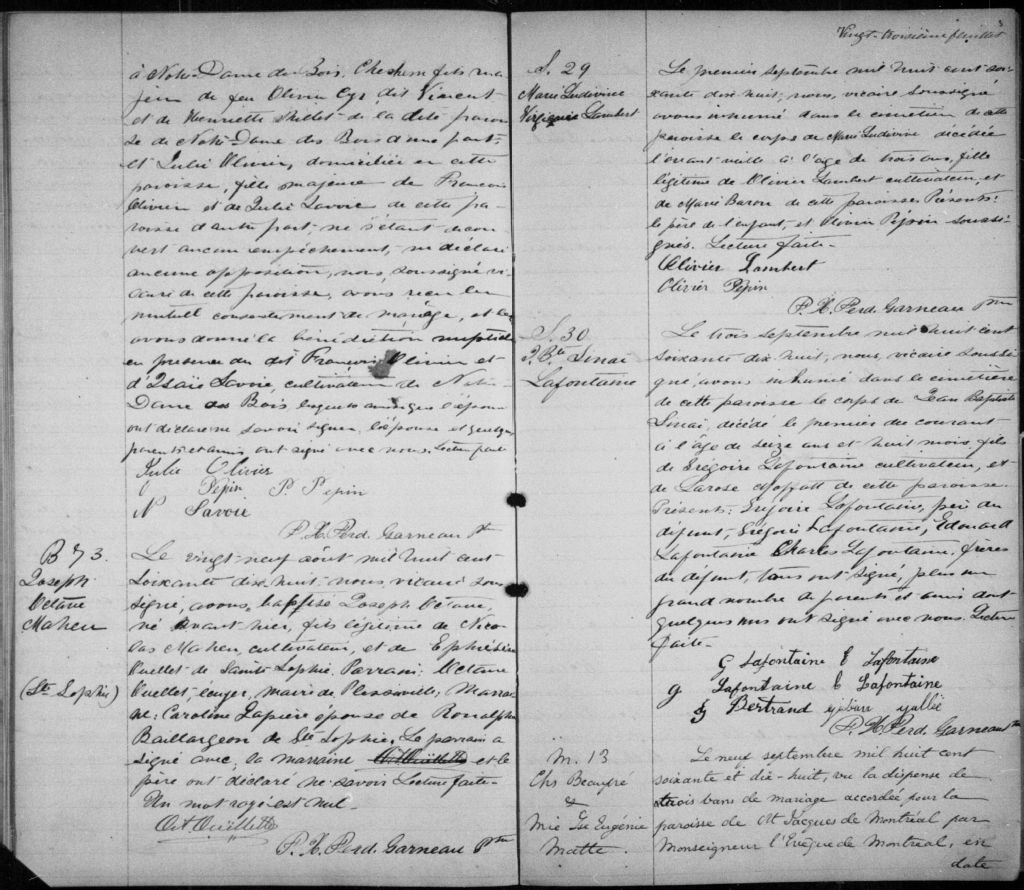 à Notre-Dame des Bois, Chesham fils ma-
jeur de feu Olivier Cyr dit Vincent
et de Henriette de la dite parois-
se de Notre-Dame des Bois d'une part:
et Julie Olivier, domiciliée en cette
paroisse, fille majeure de François
Olivier et de Julie Savoie de cette pa-
roisse d'autre part: ne s'étant décou-
vert aucun empêchement, ni déclaré
aucune opposition, nous, soussigné vi-
caire de cette paroisse, avons reçu leur
mutuel consentement de mariage, et leur
avons donné la bénédiction nuptiale
en présence du dit François Olivier et
d'Isaïe Savoie, cultivateur de Notre-
Dame des Bois lesquels ainsi que l'époux
ont déclaré ne savoir signer, l'épouse et quelques
parents et amis ont signé avec nous. Lecture faite
Julie Olivier
O Pepin P. Pepin
N Savoie
P. X. Ferd. Garneau Ptr
B 73.
Joseph
Octave
Maheu
(Ste Sophie)
Le vingt neuf août mil huit cent
soixante dix huit, nous, vicaire sous-
signé, avons baptisé Joseph Octave,
né avant hier, fils légitime de Nico-
las Maheu, cultivateur, et de Ephrésine
Ouellet de Sainte Sophie. Parrain: Octave
Ouellet, écuyer, maire de Plessisville; Marrai-
ne: Caroline Lapière épouse de
Baillargeon de Ste Sophie, Le parrain a
signé avec, la marraine et le
père ont déclaré ne savoir Lecture faite-
Un mot rayé est nul-
Oct. Ouëllette
P. X. Ferd. Garneau Ptre
Vingt-troisième feuillet
S. 29
Marie Ludivine
Virginie Lambert
Le premier septembre mil huit cent soi-
xante dix-huit, nous, vicaire soussigné
avons inhumé dans le cimetière de cette
paroisse le corps de Marie Ludivine décédée
l'avant veille à l'âge de trois ans, fille
légitime de Olivier Lambert cultivateur, et
de Marie Baron de cette paroisse. Présents:
le père de l'enfant, et Olivier Pépin soussi-
gnés. Lecture faite-
Olivier Lambert
Olivier Pépin
P. X. Ferd. Garneau Ptre
S. 30
J. Bte Sinai
Lafontaine
Le trois septembre mil huit cent
soixante dix-huit, nous, vicaire soussi-
gné, avons inhumé dans le cimetière
de cette paroisse le corps de Jean Baptiste
Sinai, décédé le premier du courant
à l'âge de seize ans et huit mois fils
de Grégoire Lafontaine cultivateur, et
de Larose Moffatt de cette paroisse.
Présents: Grégoire Lafontaine, père du
défunt, Grégoire Lafontaine, Edouard
Lafontaine Charles Lafontaine, frères
du défunt, tous ont signé, plus un
grand nombre de parents et amis dont
quelques uns ont signé avec nous. Lecture
faite-
G Lafontaine E Lafontaine
G Lafontaine C Lafontaine
G Bertrand
P. X. Ferd. Garneau Ptre
M. 13
Chs Beaupré
&
Mie Eugénie
Matte.
Le neuf septembre mil huit cent
soixante et dix-huit, vu la dispense de
trois bans de mariage accordée pour la
paroisse de St Jacques de Montréal par
Monseigneur l'Evêque de Montréal, en
date